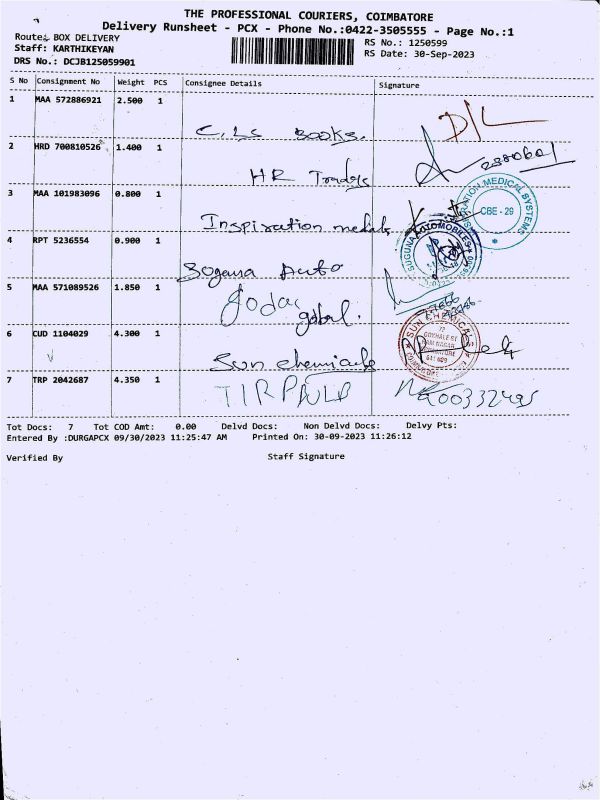 THE PROFESSIONAL COURIERS, COIMBATORE
Delivery Runsheet - PCX - Phone No.:0422-3505555 - Page No.:1
Route: BOX DELIVERY
Staff: KARTHIKEYAN
DRS No.: DCJB125059901
RS No.: 1250599
RS Date: 30-Sep-2023
S No Consignment No Weight PCS Consignee Details Signature
1 MAA 572886921 2.500 1
C.LS BOOKS.
2 HRD 700810526 1.400 1
HR Traders
3 MAA 101983096 0.800 1
Inspiration medals
MEDICAL SYSTEMS
CBE - 29
4 RPT 5236554 0.900 1
Soguna Auto
SUGUNA AUTOMOBILES
5 MAA 571089526 1.850 1
gobal.
6 CUD 1104029 4.300 1
Sun chemicals
SUN CHEMICALS
7 TRP 2042687 4.350 1
Tot Docs: 7 Tot COD Amt: 0.00 Delvd Docs: Non Delvd Docs: Delvy Pts:
Entered By :DURGAPCX 09/30/2023 11:25:47 AM Printed On: 30-09-2023 11:26:12
Verified By Staff Signature